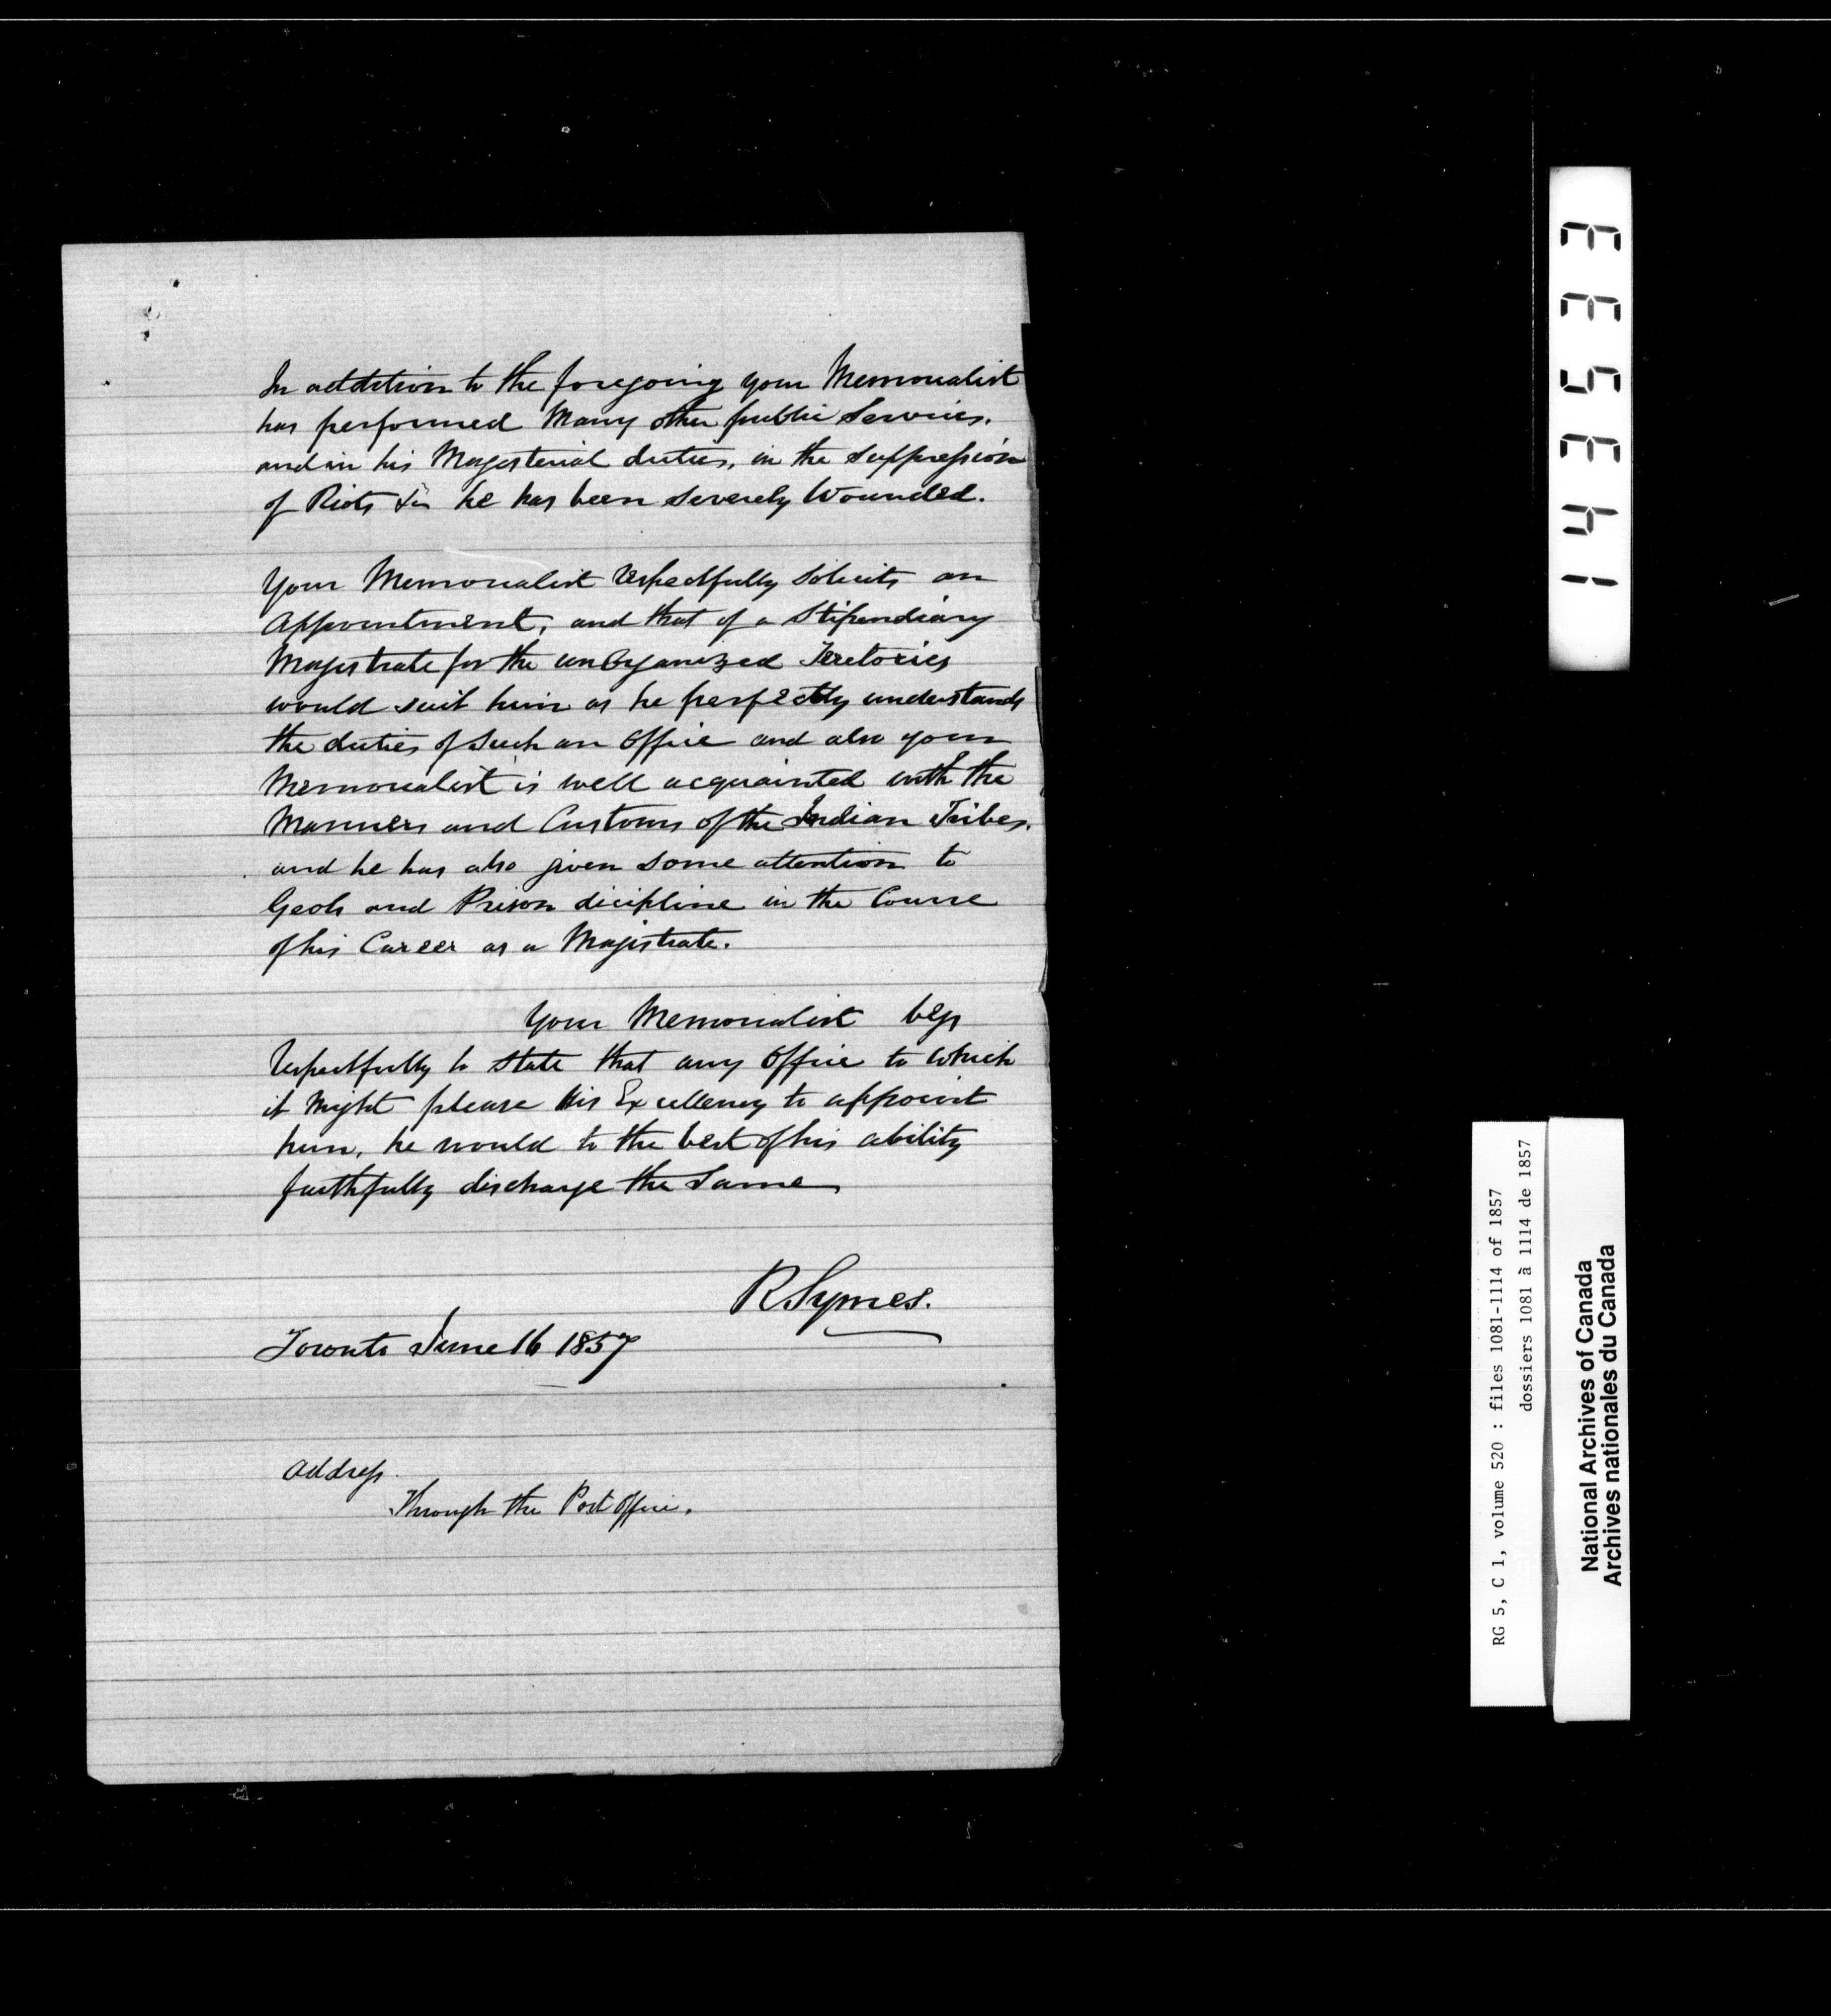 In addition to the foregoing your Memorialist
has performed Many other public Services.
and in his Magisterial duties, in the suppression
of Riots &c he has been severely Wounded.
Your Memorialist respectfully solicits an
Appointment, and that of a Stipendiary
Magistrate for the unOrganized Teretories
would suit him as he perfectly understands
the duties of Such an Office and also your
Memorialist is well acquainted with the
Manners and Customs of the Indian Tribes.
and he has also given some attention to
Geols and Prison dicipline in the Course
of his Career as a Magistrate.
Your Memorialist begs
respectfully to state that any Office to which
it Might please His Excellency to appoint
him, he would to the best of his ability
faithfully discharge the Same
R Symes.
Toronto June 16 1857
Address.
Through the Post Office.
143533
RG 5, C 1, volume 520 : files 1081-1114 of 1857
dossiers 1081 à 1114 de 1857
National Archives of Canada
Archives nationales du Canada